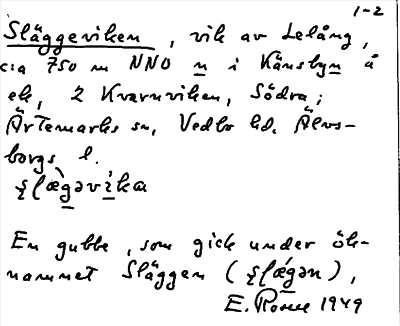 1-2
Släggeviken, vik av Lelång,
c:a 750 m NNO n i Känsbyn å
ek, 2 Kvarnviken, Södra;
Ärtemarks sn, Vedbo hd, Älvs-
borgs l.
En gubbe, som gick under ök-
namnet Släggen
E. Rosell 1949